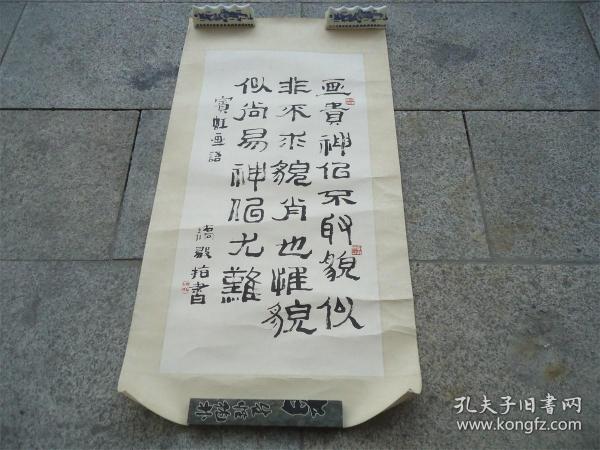 画貴神似不取貌似
非不求貌肖也惟貌
似尚易神似尤難
賓虹画語
殿柏書
孔夫子旧書网
www.kongfz.com